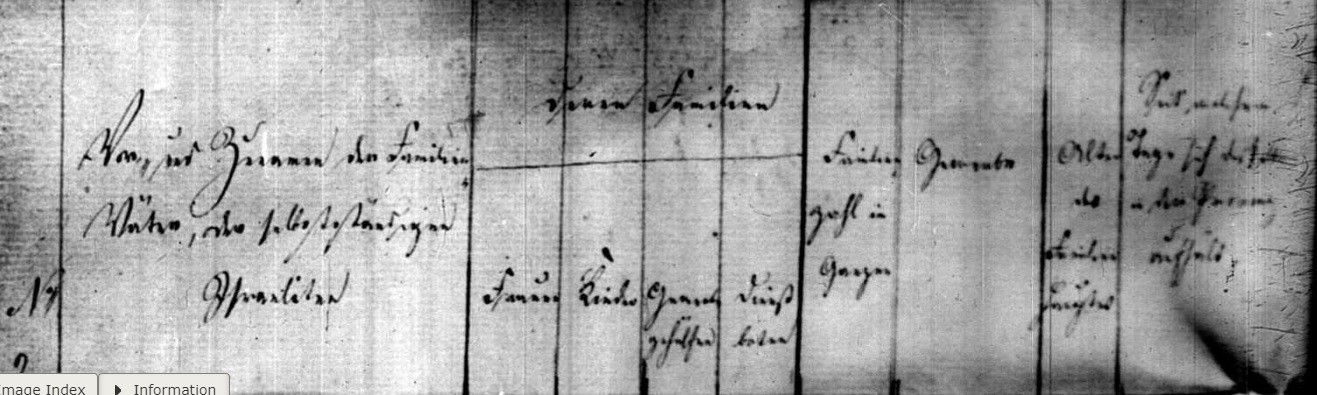 Nro
Vor- und Zunamen der Familien
Väter, der selbstständigen
Israeliten
deren Familien
Frauen
Kinder
Gewerbs
gehülfen
Dienst
boten
Familien
zahl im
Ganzen
Gewerbe
Alter
des
Familien
hauptes
Seit welchem
Tage sich dieselbe
in der Provinz
aufhält
Image Index
Information